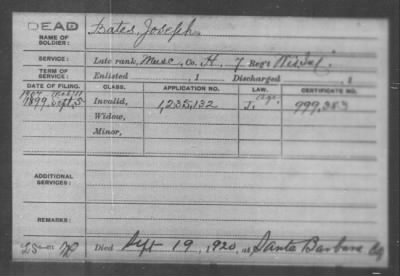 DEAD
NAME OF SOLDIER: Bates, Joseph
SERVICE: Late rank, Musc, Co. H, 7 Reg't Wis Inf
TERM OF SERVICE: Enlisted , 1 Discharged , 1
DATE OF FILING. CLASS. APPLICATION NO. LAW. CERTIFICATE NO.
1899, Sept. 5 Invalid, 1,235,132 J. Age. 999,383
Widow,
Minor,
ADDITIONAL SERVICES:
REMARKS:
Died Sept 19, 1920, at Santa Barbara